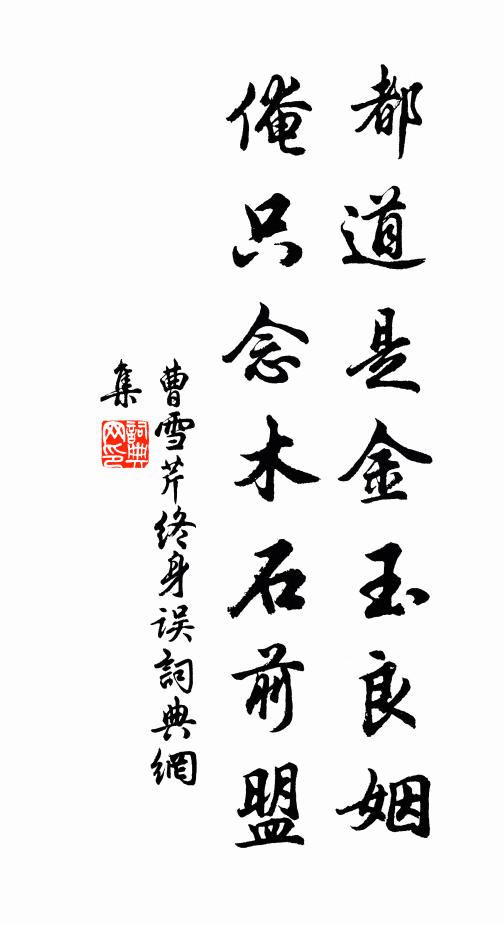 都道是金玉良姻
俺只念木石前盟
曹雪芹终身误詞典網
集
詞典网印